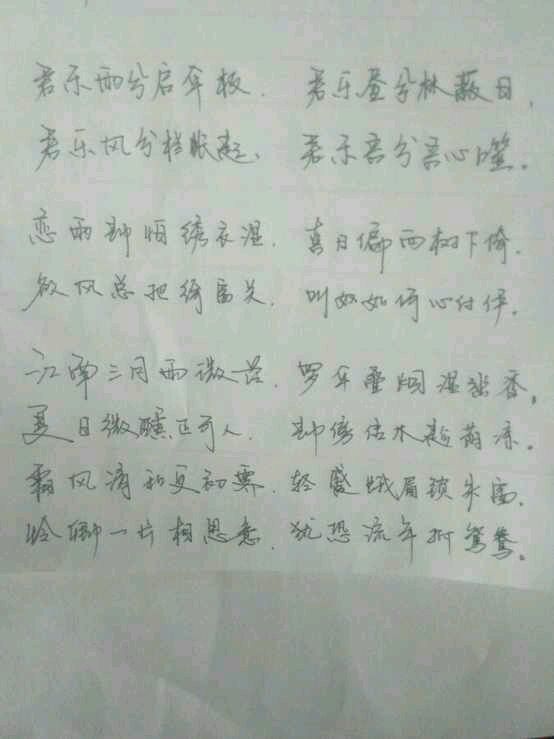 君乐雨兮启伞枝, 君乐昼兮林蔽日,
君乐风兮栏帐起, 君乐吝兮吾心噬。
恋雨却怕绣衣湿, 喜日偏向树下倚,
欲风总把绮窗关, 叫奴如何心付伊。
江南三月雨微茫, 罗伞叠烟湿幽香。
夏日微醺正可人, 却傍佳木趁荫凉。
霜风清和更初霁, 轻蹙蛾眉锁朱窗。
怜卿一片相思意, 犹恐流年拆鸳鸯。